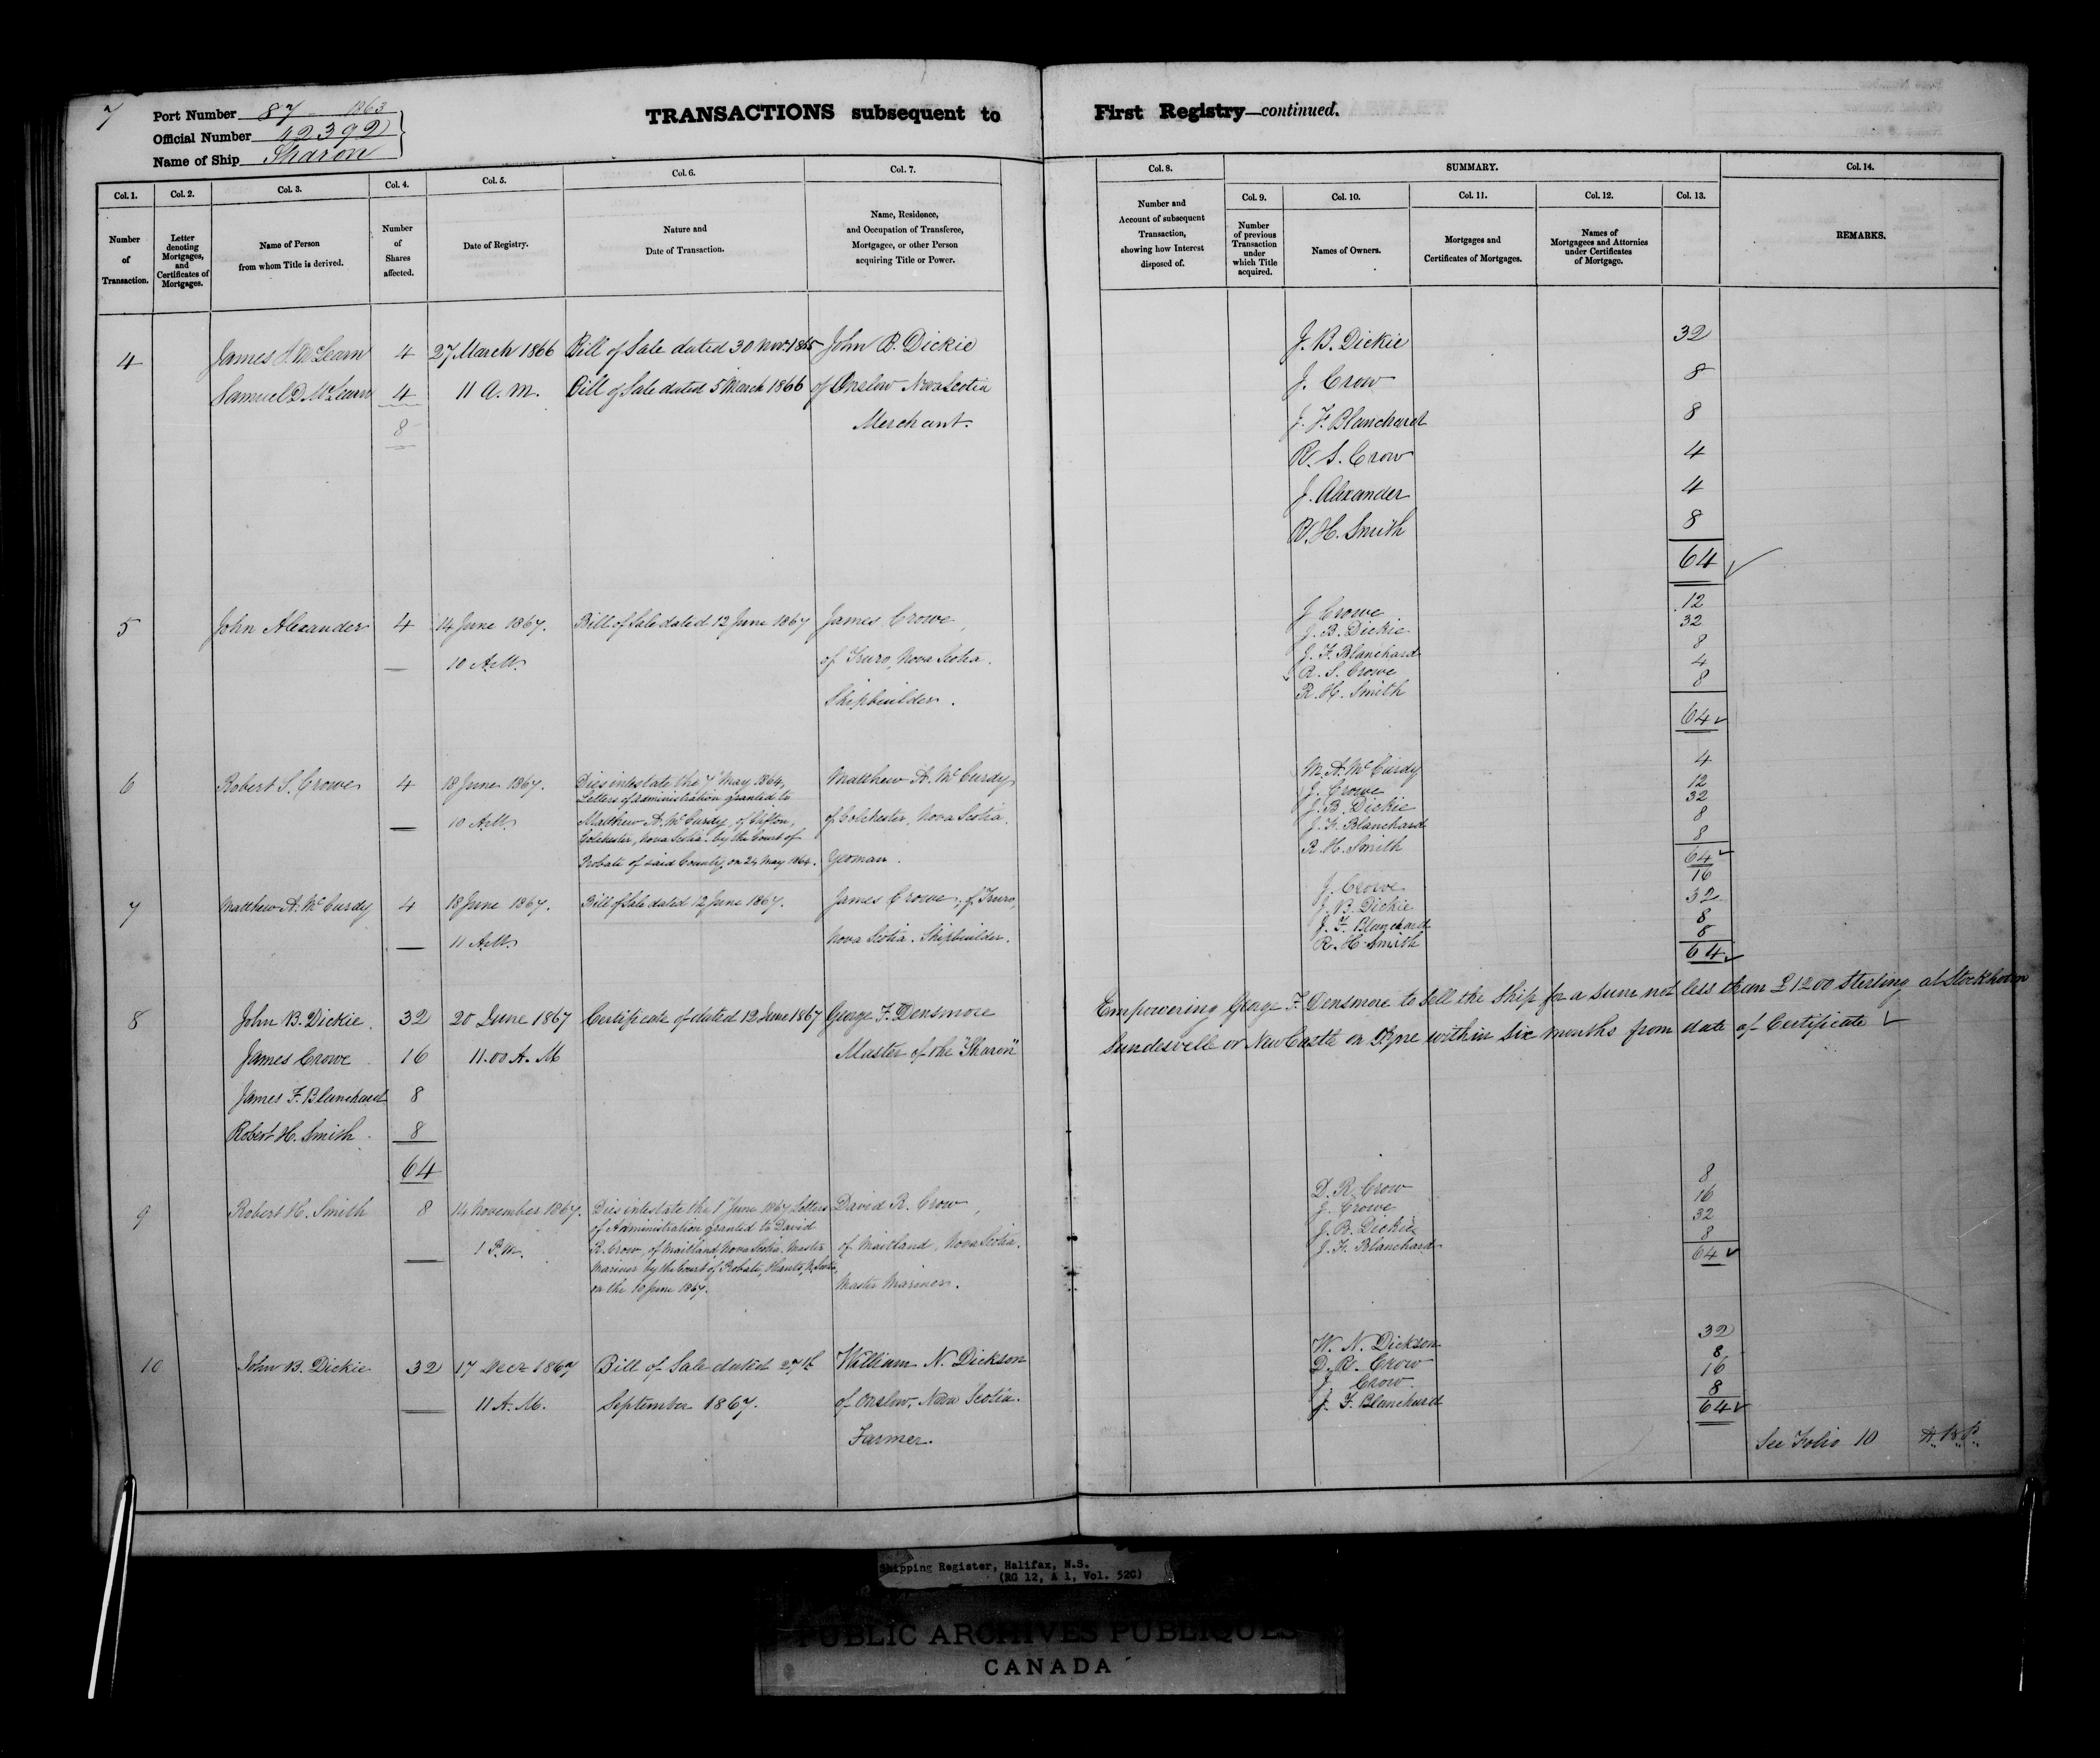 7
Port Number 87 1863
Official Number 42392
Name of Ship Sharon
TRANSACTIONS subsequent to First Registry—continued.
Col. 1. Col. 2. Col. 3. Col. 4. Col. 5. Col. 6. Col. 7.
Number of Transaction.
Letter denoting Mortgages, and Certificates of Mortgages.
Name of Person from whom Title is derived.
Number of Shares affected.
Date of Registry.
Nature and Date of Transaction.
Name, Residence, and Occupation of Transferee, Mortgagee, or other Person acquiring Title or Power.
Col. 8. SUMMARY. Col. 14.
Col. 9. Col. 10. Col. 11. Col. 12. Col. 13.
Number and Account of subsequent Transaction, showing how Interest disposed of.
Number of previous Transaction under which Title acquired.
Names of Owners.
Mortgages and Certificates of Mortgages.
Names of Mortgagees and Attornies under Certificates of Mortgage.
REMARKS.
4 James McLearn 4 27 March 1866 Bill of Sale dated 30 Nov. 1865 John B. Dickie
Samuel D. McLearn 4 11 A.M. Bill of Sale dated 5 March 1866 of Onslow Nova Scotia
8 Merchant.
J. B. Dickie 32
J. Crow 8
J. F. Blanchard 8
R. S. Crow 4
J. Alexander 4
R. H. Smith 8
64
5 John Alexander 4 14 June 1867. Bill of Sale dated 12 June 1867 James Crowe,
10 A.M. of Truro, Nova Scotia.
Shipbuilder.
J Crowe 12
J. B. Dickie 32
J. F. Blanchard 8
R. S. Crowe 4
R. H. Smith 8
64
6 Robert S. Crowe 4 18 June 1867. Dies intestate the 7 May 1864, Matthew A. McCurdy,
Letters of administration granted to
10 A.M. Matthew A. McCurdy, of Clifton, of Colchester, Nova Scotia.
Colchester, Nova Scotia by the Court of
Probate of said County, on 24 May 1864. Yeoman.
M. A. McCurdy 4
J. Crowe 12
J. B. Dickie 32
J. F. Blanchard 8
R. H. Smith 8
64
7 Matthew A. McCurdy 4 18 June 1867. Bill of Sale dated 12 June 1867. James Crowe, of Truro,
11 A.M. Nova Scotia. Shipbuilder.
J. Crowe 16
J. B. Dickie 32
J. F. Blanchard 8
R. H. Smith 8
64
8 John B. Dickie. 32 20 June 1867 Certificate of dated 12 June 1867 George F. Densmore
James Crowe 16 11.00 A. M Master of the "Sharon"
James F. Blanchard 8
Robert H. Smith 8
64
Empowering George F. Densmore to Sell the Ship for a sum not less than £1200 Sterling at Stockholm
or NewCastle on Tyne within six months from date of Certificate
9 Robert H. Smith 8 14 November 1867. Dies intestate the 1st June 1867 Letters David R. Crow,
of Administration granted to David
1 P.M. R. Crow, of Maitland, Nova Scotia. Master of Maitland, Nova Scotia.
Mariner by the Court of Probate, Hants, N. Scotia,
on the 10 June 1867. Master Mariner.
D. R. Crow 8
J. Crowe 16
J. B. Dickie 32
J. F. Blanchard 8
64
10 John B. Dickie 32 17 Decr 1867 Bill of Sale dated 27th William N. Dickson
11 A.M. September 1867. of Onslow, Nova Scotia.
Farmer.
W. N. Dickson 32
D. R. Crow 8
J. Crow 16
J. F. Blanchard 8
64
See Folio 10
Shipping Register, Halifax, N.S.
(RG 12, A 1, Vol. 520)
PUBLIC ARCHIVES PUBLIQUES
CANADA